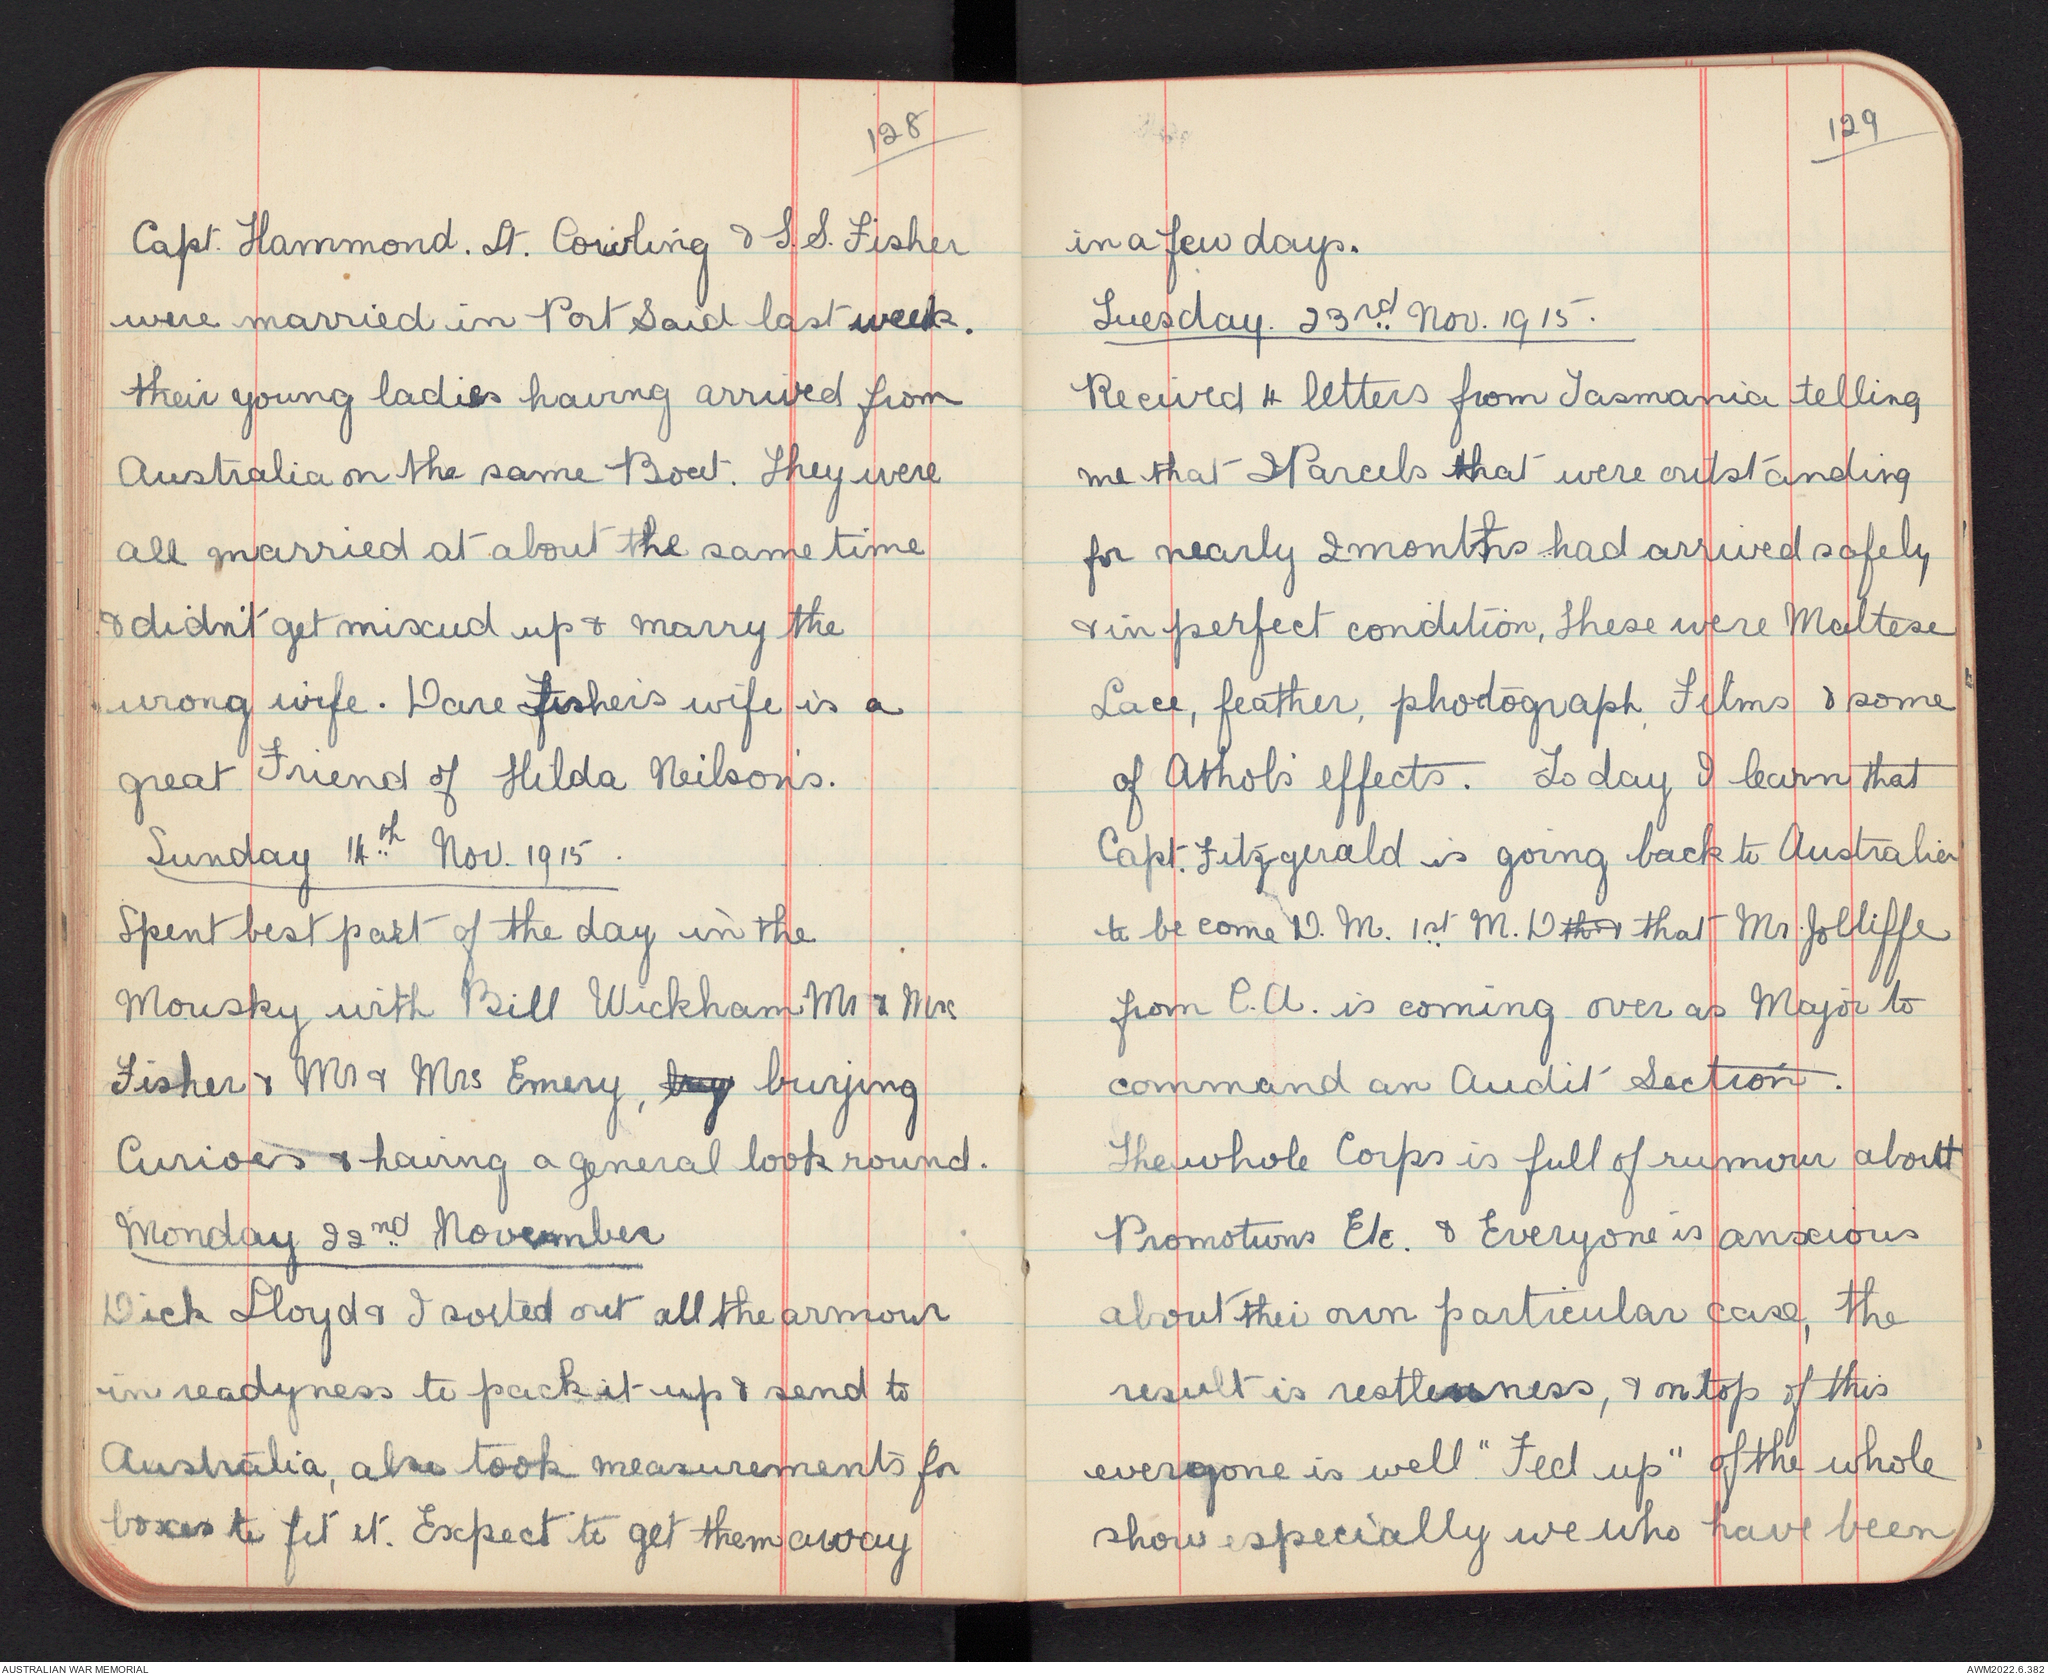 128
Capt. Hammond. Lt. Cowling & S.S. Fisher
were married in Port Said last week.
their young ladies having arrived from
Australia on the same Boat. They were
all married at about the same time
& didn't get mixed up & marry the
wrong wife. Dave Fisher's wife is a
great Friend of Hilda Neilson's.
Sunday 14th Nov. 1915.
Spent best part of the day in the
Mousky with Bill Wickham Mr & Mrs
Fisher & Mr & Mrs Emery, buy burying
Curioes & having a general look round.
Monday 22nd November
Dick Lloyd & I sorted out all the armour
in readyness to pack it up & send to
Australia, also took measurements for
boxes to fit it. Expect to get them away
129
in a few days.
Tuesday. 23rd Nov. 1915.
Recived 4 letters from Tasmania telling
me that 2 Parcels that were outstanding
for nearly 2 months had arrived safely
& in perfect condition, these were Maltese
Lace, feather, photograph, Films & some
of Athol's effects. To day I learn that
Capt. Fitzgerald is going back to Australia
to be come D. M. 1st M. D that Mr. Jolliffe
from C.A. is coming over as Major to
command an Audit Section.
The whole Corps is full of rumour about
Promotions Etc. & Everyone is anxious
about thei own particular case, the
result is restlessness, & on top of this
everyone is well "Fed up" of the whole
show especially we who have been
AUSTRALIAN WAR MEMORIAL
AWM2022.6.382